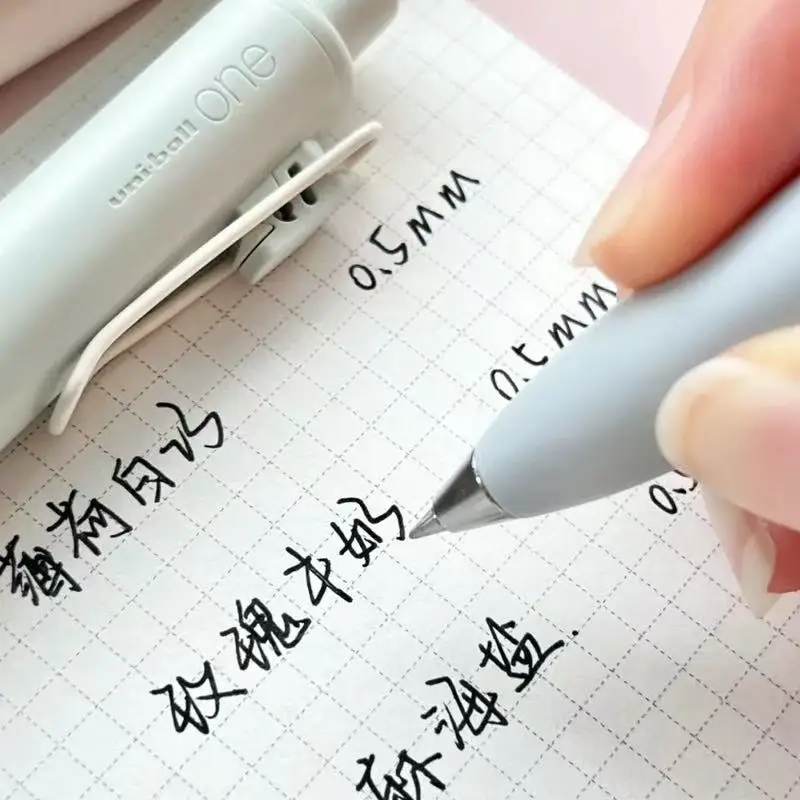 uni-ball one
薄荷白巧 0.5mm
玫瑰牛奶 0.5mm
麻海盐. 0.5